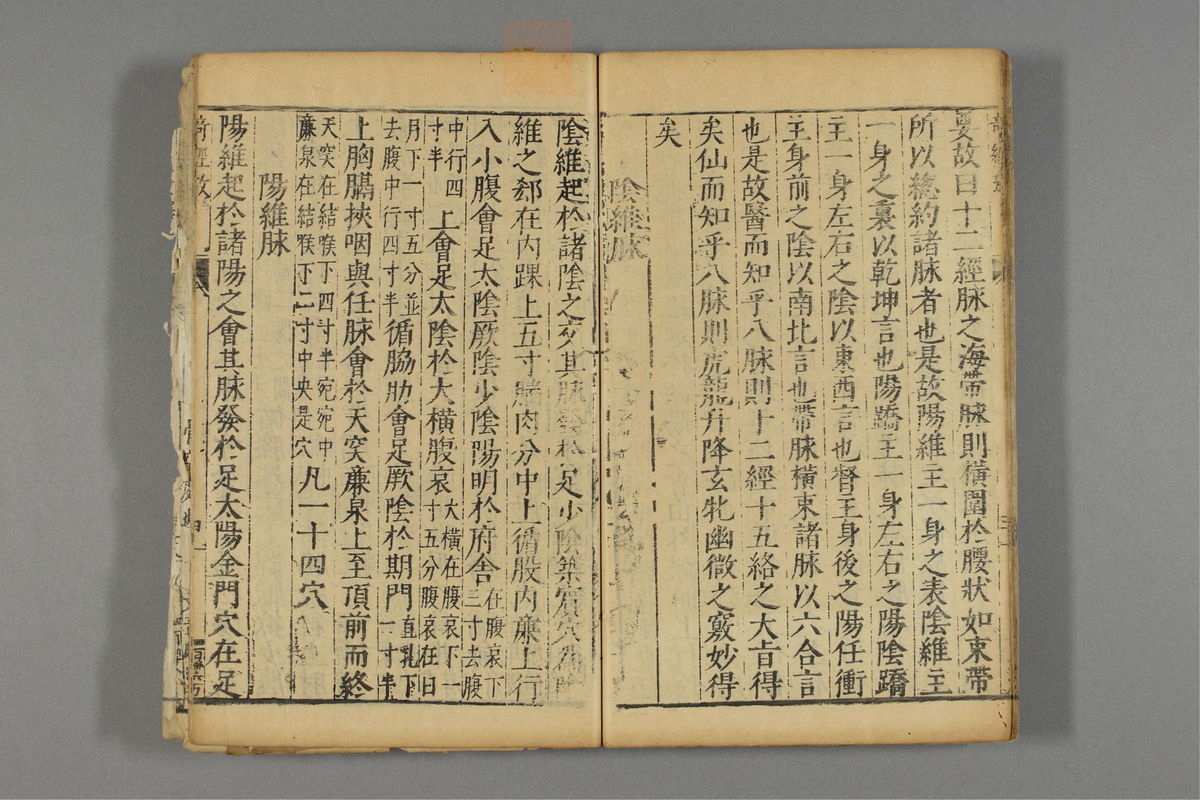 要故曰十二經脉之海帶脉則橫圍於腰狀如束帶
所以總約諸脉者也是故陽維主一身之表陰維主
一身之裏以乾坤言也陽蹻主一身左右之陽陰蹻
主一身左右之陰以東西言也督主身後之陽任衝
主身前之陰以南北言也帶脉橫束諸脉以六合言
也是故醫而知乎八脉則十二經十五絡之大旨得
矣仙而知乎八脉則虎龍升降玄牝幽微之竅妙得
矣
陰維脉
陰維起於諸陰之交其脉發於足少陰築賔穴爲陰
維之郄在内踝上五寸腨肉分中上循股内廉上行
入小腹會足太陰厥陰少陰陽明於府舎在腹哀下
三寸去腹
中行四
寸半上會足太陰於大横腹哀大横在腹哀下一
寸五分腹哀在日
月下一寸五分並
去腹中行四寸半循脇肋會足厥陰於期門直乳下
一寸半
上胸膈挾咽與任脉會於天突廉泉上至頂前而終
天突在結喉下四寸半宛宛中
廉泉在結喉下二寸中央是穴凡一十四穴
陽維脉
陽維起於諸陽之會其脉發於足太陽金門穴在足